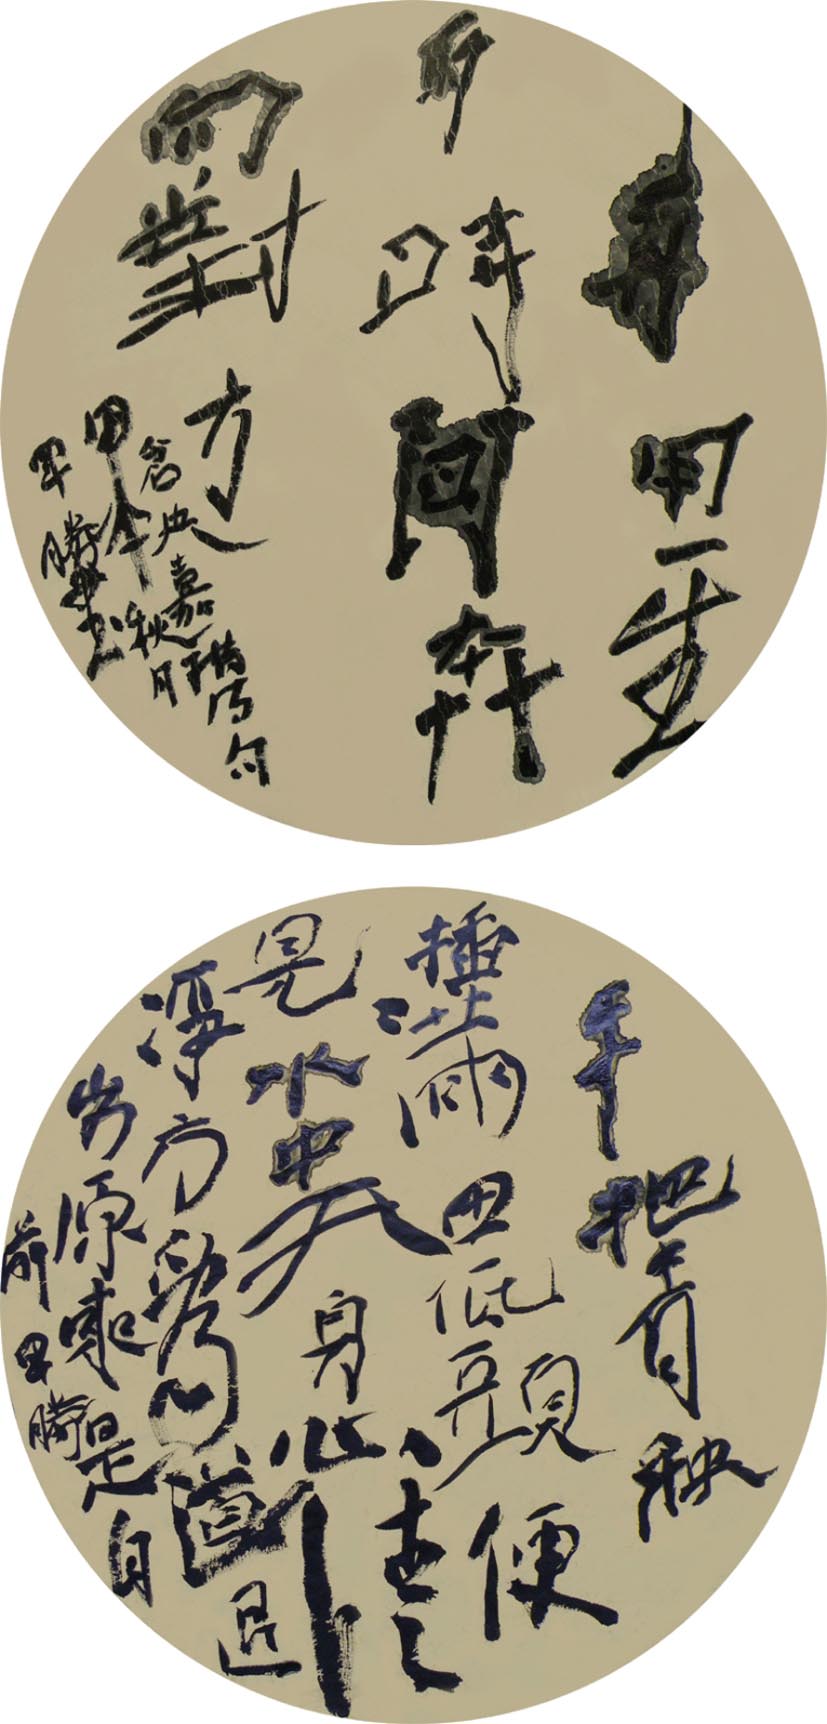 再用一生
的時間奔
向對方
倉央嘉措詩句
甲午秋月
軍勝書
手把青秧
插滿田低頭便
見水中天身心清
淨方為道退
步原來是向
前 軍勝